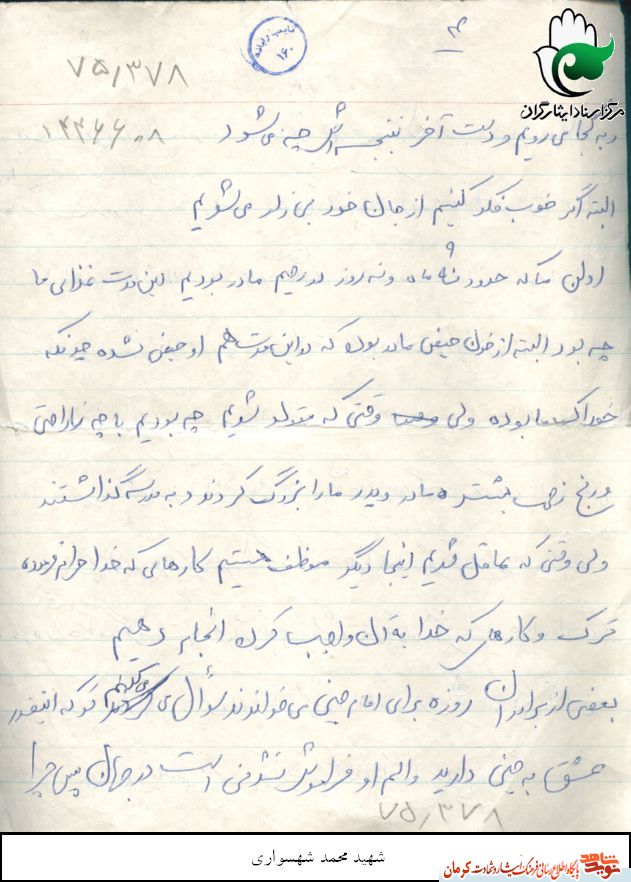 ۴
تایپ رایانه
۱۶۰
۷۵٫۳۷۸
مرکز اسناد ایثارگران
۱۳۶۶۶۰۸
و به کجا می رویم و دست آخر نتیجه اش چه می شود
البته اگر خوب فکر کنیم از جان خود بی زار می شویم
اولن ما که حدود نه ۹ ماه و نه روز در رحیم مادر بودیم این مدت غذای ما
چه بود البته از خون حیض مادر بوده که در این مدت هم او حیض نشده چونکه
خوراک ما بوده ولی وقتی که متولد شویم چه بودیم با چه ناراحتی
و رنج زحمت بیشتر مادر و پدر ما را بزرگ کردند و به مدرسه گذاشتند
ولی وقتی که عاقل شدیم اینجا دیگر موظف هستیم کارهای که خدا حرام فرموده
ترک و کارهای که خدا به آن واجب کرده انجام دهیم
بعضی از برادران روزه برای امام حسین می خواندند سؤال می کنم تو که اینقدر
عشق به حسین دارید والم او فراموش نشدنی است در جهان پس چرا
۷۵٫۳۷۸
شهید محمد شهسواری
نوید شاهد
پایگاه اطلاع رسانی فرهنگ ایثار و شهادت کرمان